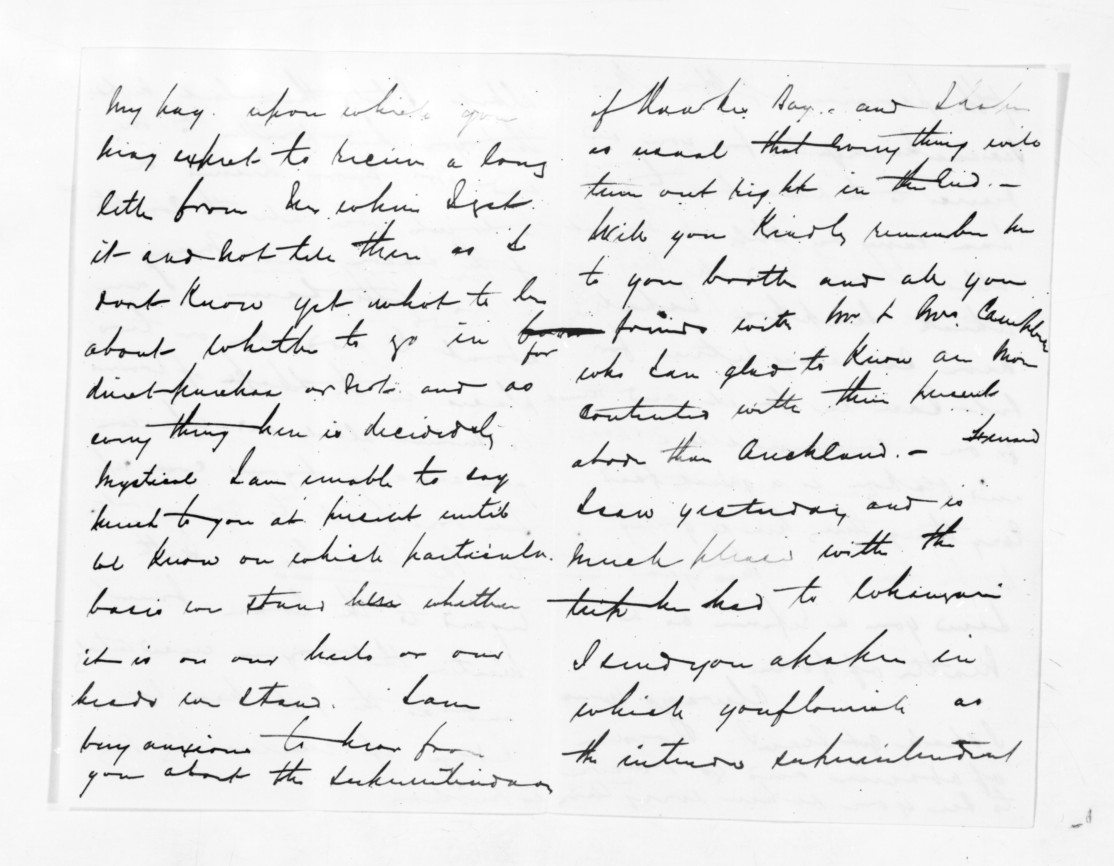 my pay. upon which you
may expect to receive a long
letter from me when I get
it and not till then as I
dont know yet what to be
about whether to go in for
direct purchase or not. and as
every thing here is decidedly
mystical I am unable to say
much to you at present until
we know on which particular
basis we stand whether
it is on our heels or our
heads we stand. I am
very anxious to hear from
you about the superintendency
of Hawkes Bay. and I hope
as usual that every thing will
turn out right in the End. —
Will you Kindly remember me
to your brother and all your
friends with Mr & Mrs
who I am glad to know are more
contented with their present
abode than Auckland. —
I saw yesterday and is
much pleased with the
trip he had to
I send you a paper in
which you flourish as
the intended superintendent